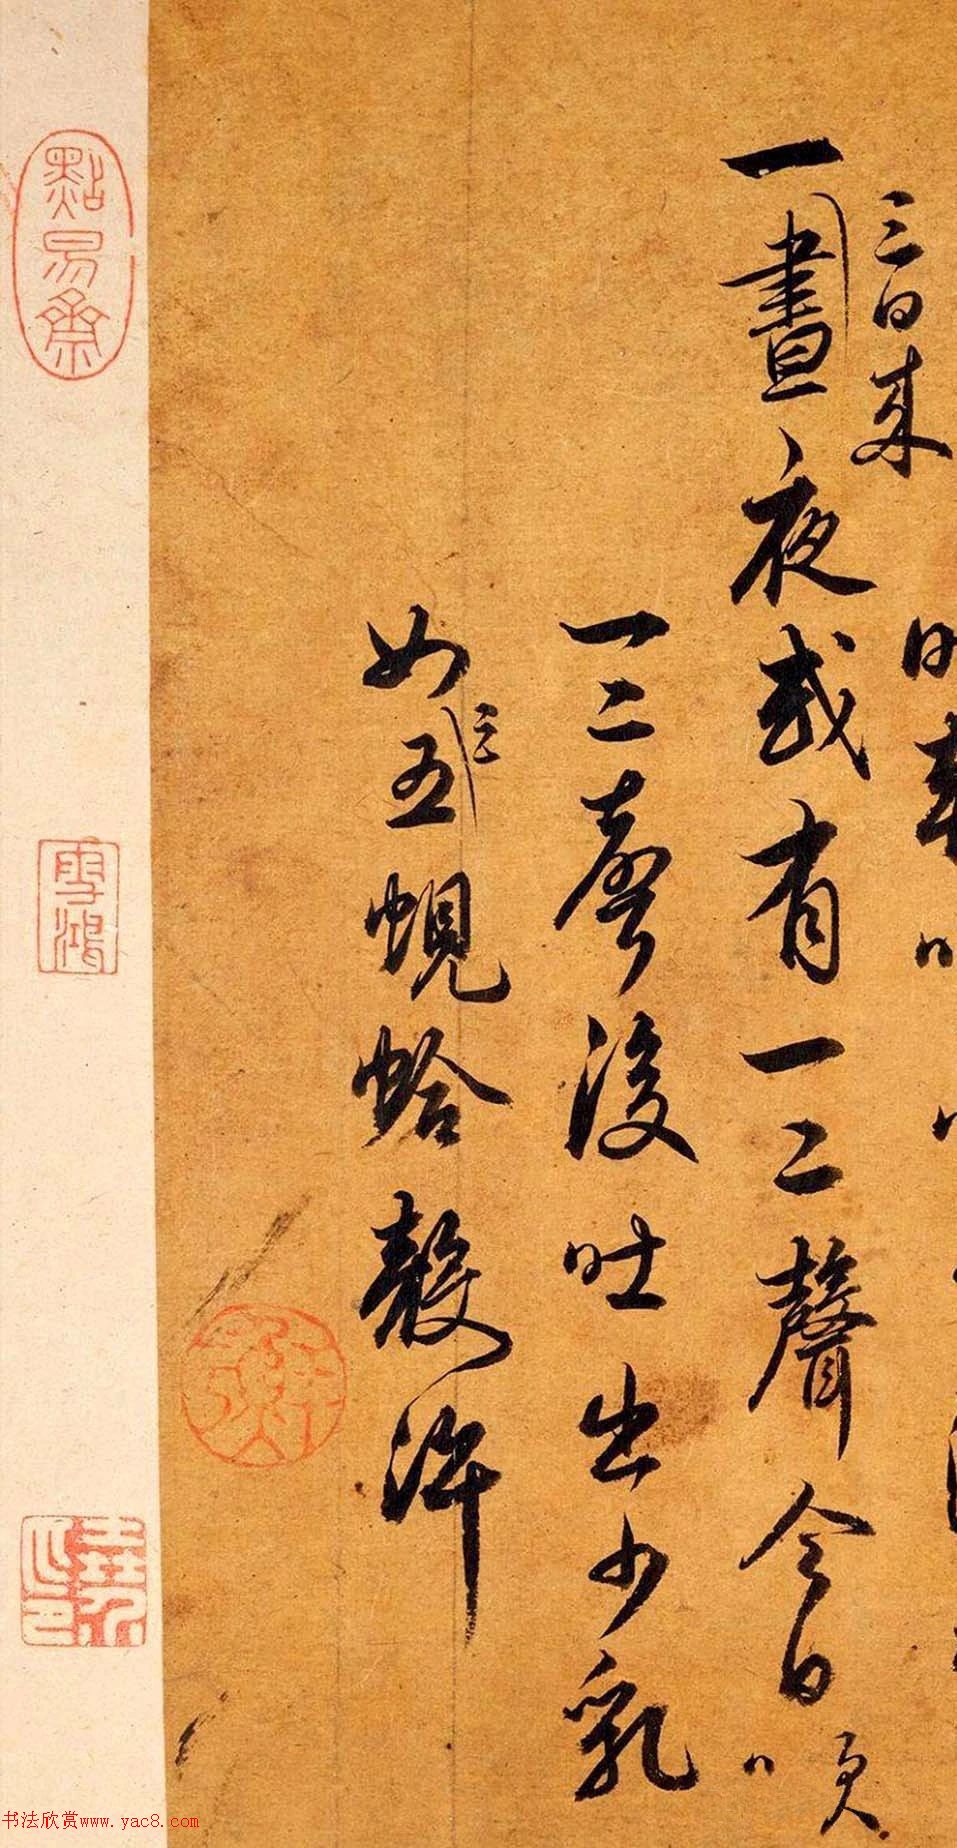 三日来
一晝夜或有一二聲今日
一二聲後吐出少乳
三
如五蜆蛤殼許
點易齋
雪鴻
书法欣赏www.yac8.com